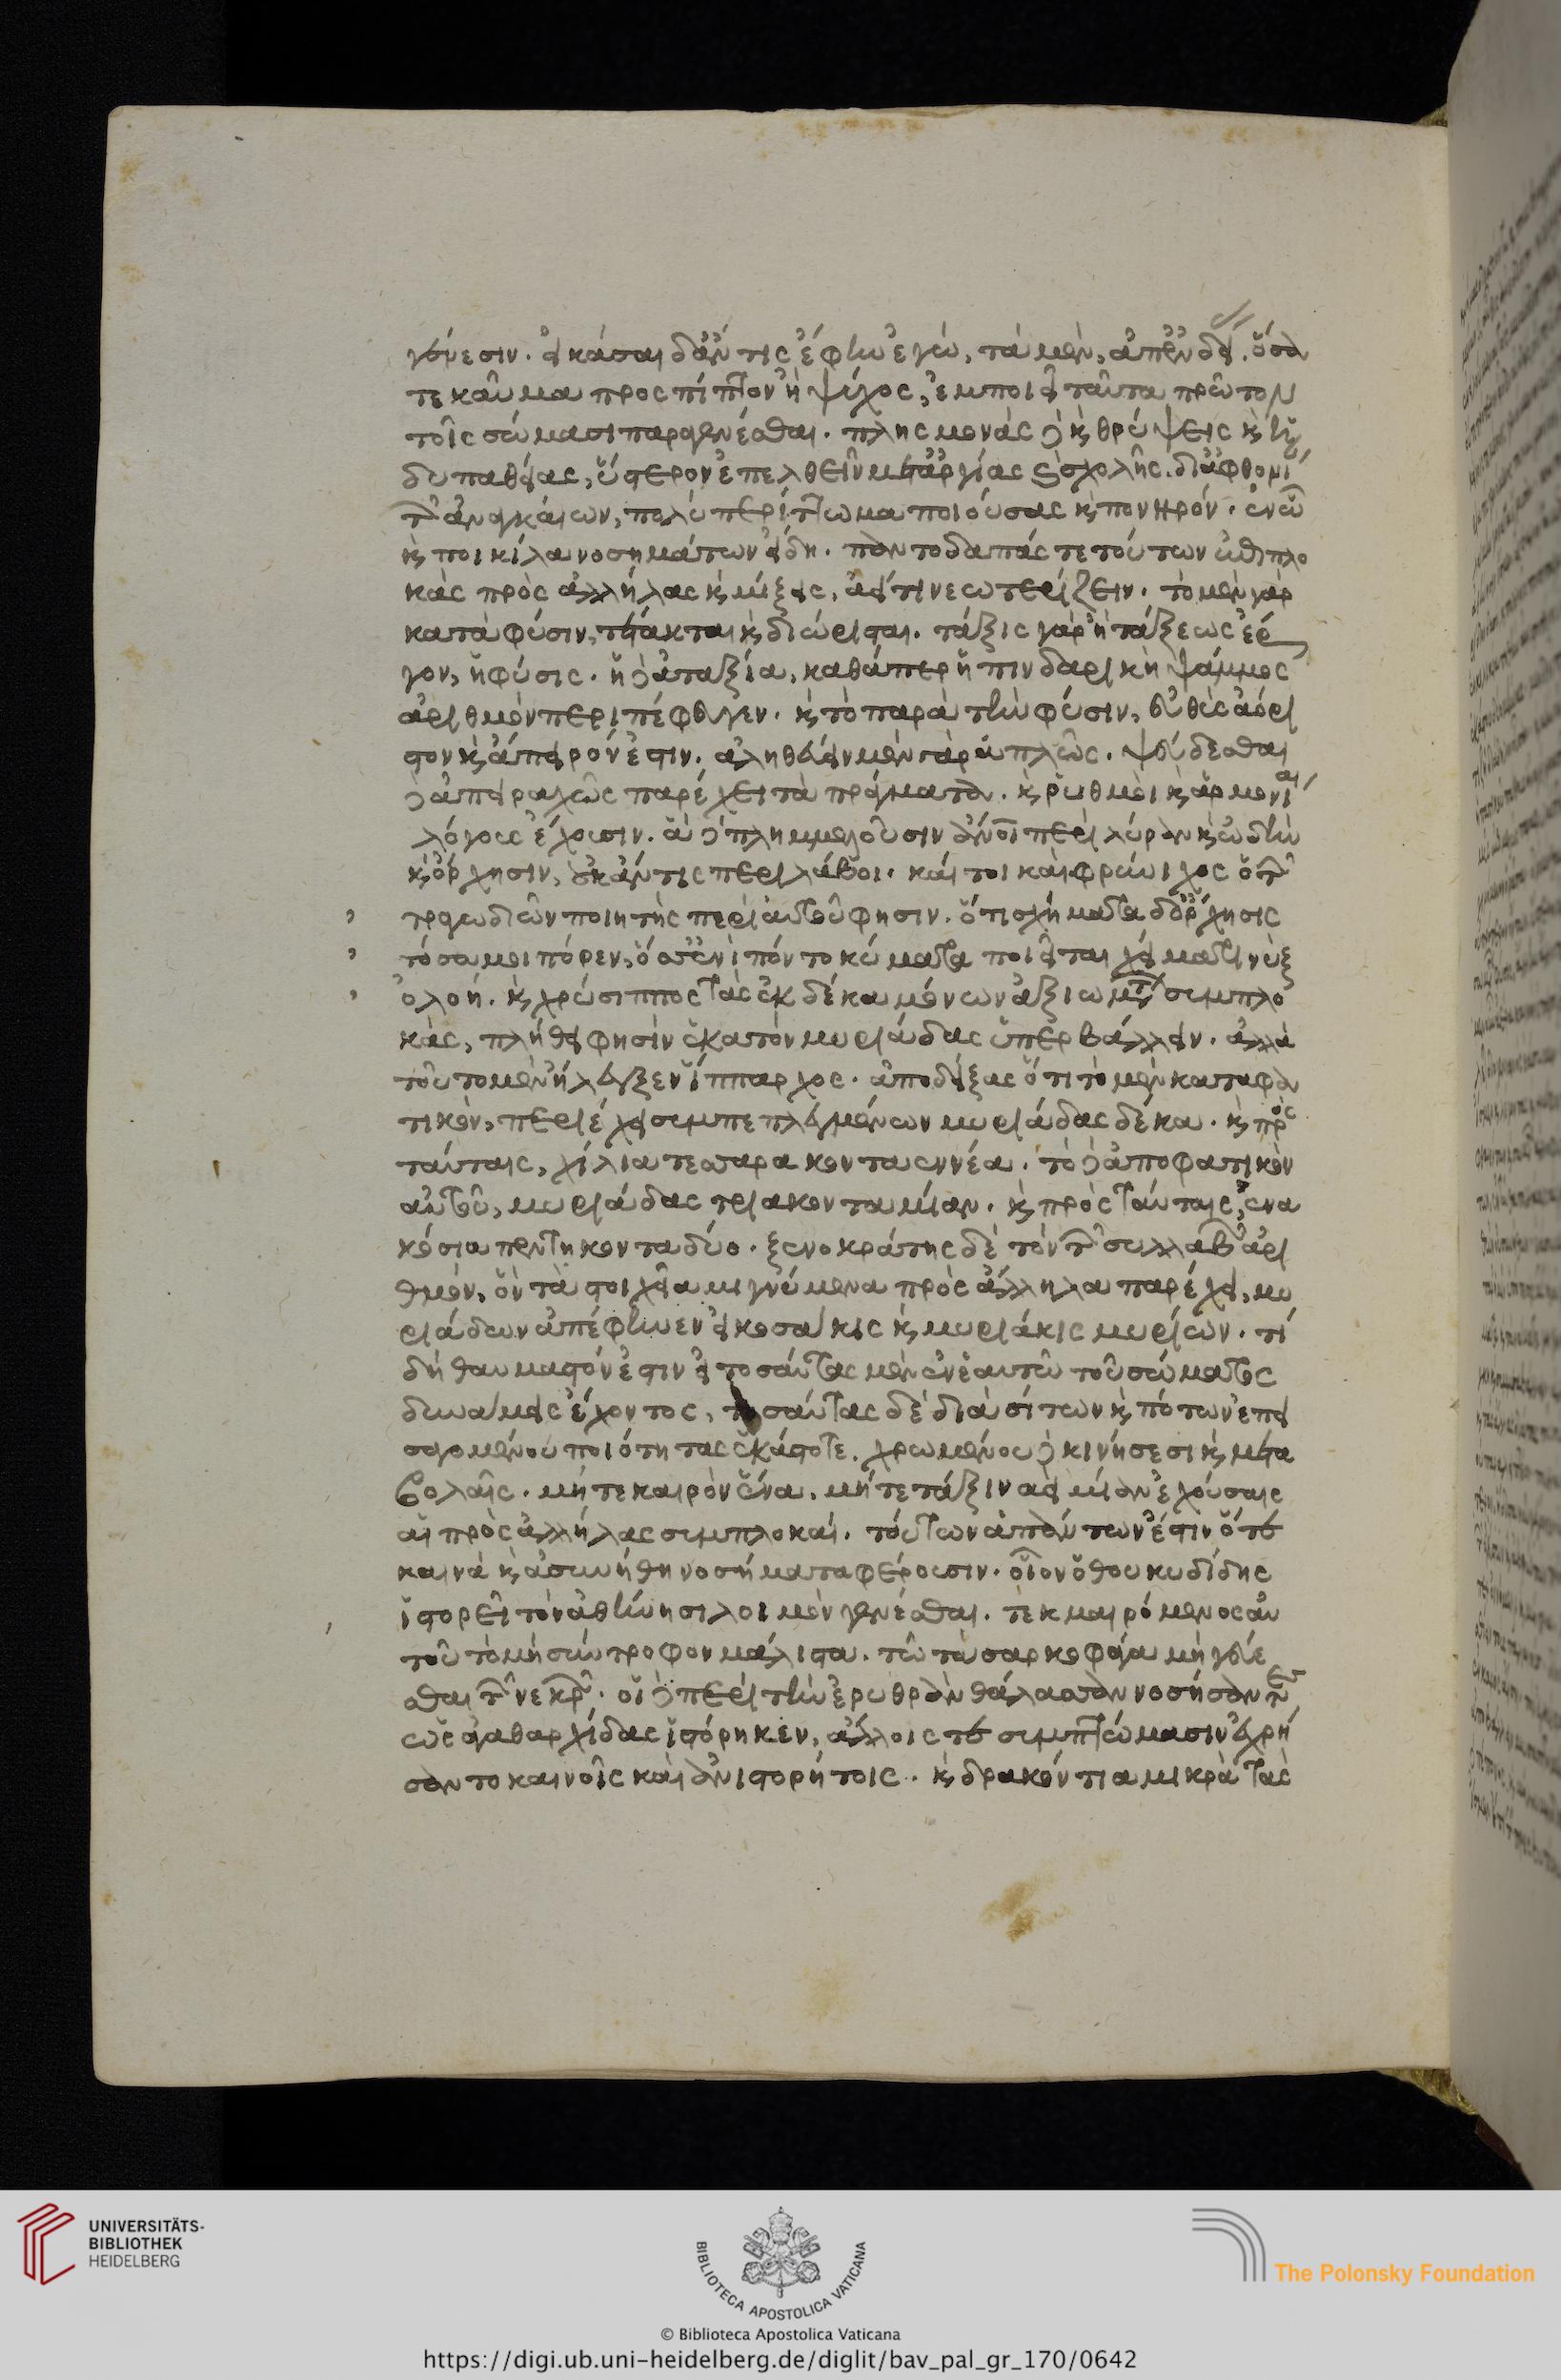 γόνεσιν. εἰκάσαι δ᾽ ἄν τις ἔφην ἐγώ, τὰ μὲν, ἀπ᾽ ἐνδεί. ὅσα
τε καῦμα προσπίπτον ἢ ψύχος, ἐμποιεῖ ταῦτα πρῶτον
τοῖς σώμασι παραγενέσθαι. πλησμονὰς δὲ καὶ θρύψεις καὶ ἡ
δυπαθείας, ὕστερον ἐπελθεῖν μετ᾽ ἀργίας καὶ σχολῆς. δι᾽ ἀφθονί
τῶν ἀναγκαίων, πολὺ περίττωμα ποιούσας καὶ πονηρόν. ἐν ᾧ
καὶ ποικίλα νοσημάτων εἴδη. παντοδαπάς τε τούτων ἐπιπλο
κὰς πρὸς ἀλλήλας καὶ μίξεις, ἀεί τι νεωτερίζειν. τὸ μὲν γὰρ
κατὰ φύσιν, τέτακται καὶ διώρισται. τάξις γὰρ ἢ τάξεως ἔρ
γον, ἡ φύσις. ἡ δὲ ἀταξία, καθάπερ ἡ πινδαρικὴ ψάμμος
ἀριθμὸν περιπέφευγεν. καὶ τὸ παρὰ τὴν φύσιν, εὐθὺς ἀόρι
στον καὶ ἄπειρόν ἐστιν. ἀληθεύειν μὲν γὰρ ἁπλῶς. ψεύδεσθαι
δὲ ἀπειραχῶς παρέχει τὰ πράγματα. καὶ ῥυθμοὶ καὶ ἁρμονίαι
λόγους ἔχουσιν. ἃ δὲ πλημμελοῦσιν ἄνοι περὶ λύραν καὶ ᾠδὴν
καὶ ὄρχησιν, οὐκ ἄν τις περιλάβοι. καί τοι καὶ φρύνιχος ὁ τῶν
τραγωδιῶν ποιητὴς περὶ αὑτοῦ φησιν. ὅτι σχήματα δ᾽ ὄρχησις
τόσα μοι πόρεν, ὅσσ᾽ ἐνὶ πόντο κύματα ποιεῖται χείματι νὺξ
ὀλοή. καὶ χρύσιππος τὰς ἐκ δέκα μόνων ἀξιωμάτων συμπλο
κὰς, πλήθει φησὶν ἑκατὸν μυριάδας ὑπερβάλλειν. ἀλλὰ
τοῦτο μὲν ἤλεγξεν ἵππαρχος. ἀποδείξας ὅτι τὸ μὲν καταφα
τικὸν, περιέχει συμπεπλεγμένων μυριάδας δέκα. καὶ πρὸς
ταύταις, χίλια τεσσαρακοντα εννέα. τὸ δὲ ἀποφατικὸν
αὐτοῦ, μυριάδας τριακονταμίαν. καὶ πρὸς ταύταις, ἐνα
κόσια πεντηκονταδύο. ξενοκράτης δὲ τὸν τῶν συλλαβῶν ἀρι
θμὸν, ὃν τὰ στοιχεῖα μιγνύμενα πρὸς ἄλληλα παρέχει, μυ
ριάδων ἀπέφηνεν εἰκοσακις καὶ μυριάκις μυρίων. τί
δὴ θαυμαστόν ἐστιν εἰ τοσαύτας μὲν ἐν ἑαυτῶ τοῦ σώματος
δυνάμεις ἔχοντος, τοσαύτας δὲ διὰ σίτων καὶ πότων ἐπει
σαγομένου ποιότητας ἑκάστοτε. χρωμένου δὲ κινήσεσι καὶ μετα
βολαῖς. μήτε καιρὸν ἕνα, μήτε τάξιν αεὶ μίαν ἐχούσαις
αἱ πρὸς ἀλλήλας συμπλοκαί. τούτων ἁπάντων ἔστιν ὅτε
καινὰ καὶ ἀσυνήθη νοσήματα φέρουσιν. οἷον ὁ θουκυδίδης
ἱστορεῖ τὸν ἀθήνησι λοιμὸν γενέσθαι. τεκμαιρόμενος αὐ
τοῦ τὸ μὴ σύντροφον μάλιστα. τῶ τὰ σαρκοφάγα μὴ γεύε
σθαι τῶν νεκρῶν. οἱ δὲ περὶ τὴν ἐρυθρὰν θάλασσαν νοσήσαντες
ὡς ἀγαθαρχίδας ἱστόρηκεν, ἄλλοις τε συμπτώμασιν ἐχρή
σαντο καινοῖς καὶ ἀνιστορήτοις. καὶ δρακόντια μικρὰ τὰς
UNIVERSITÄTS-
BIBLIOTHEK
HEIDELBERG
BIBLIOTECA APOSTOLICA VATICANA
The Polonsky Foundation
© Biblioteca Apostolica Vaticana
https://digi.ub.uni-heidelberg.de/diglit/bav_pal_gr_170/0642